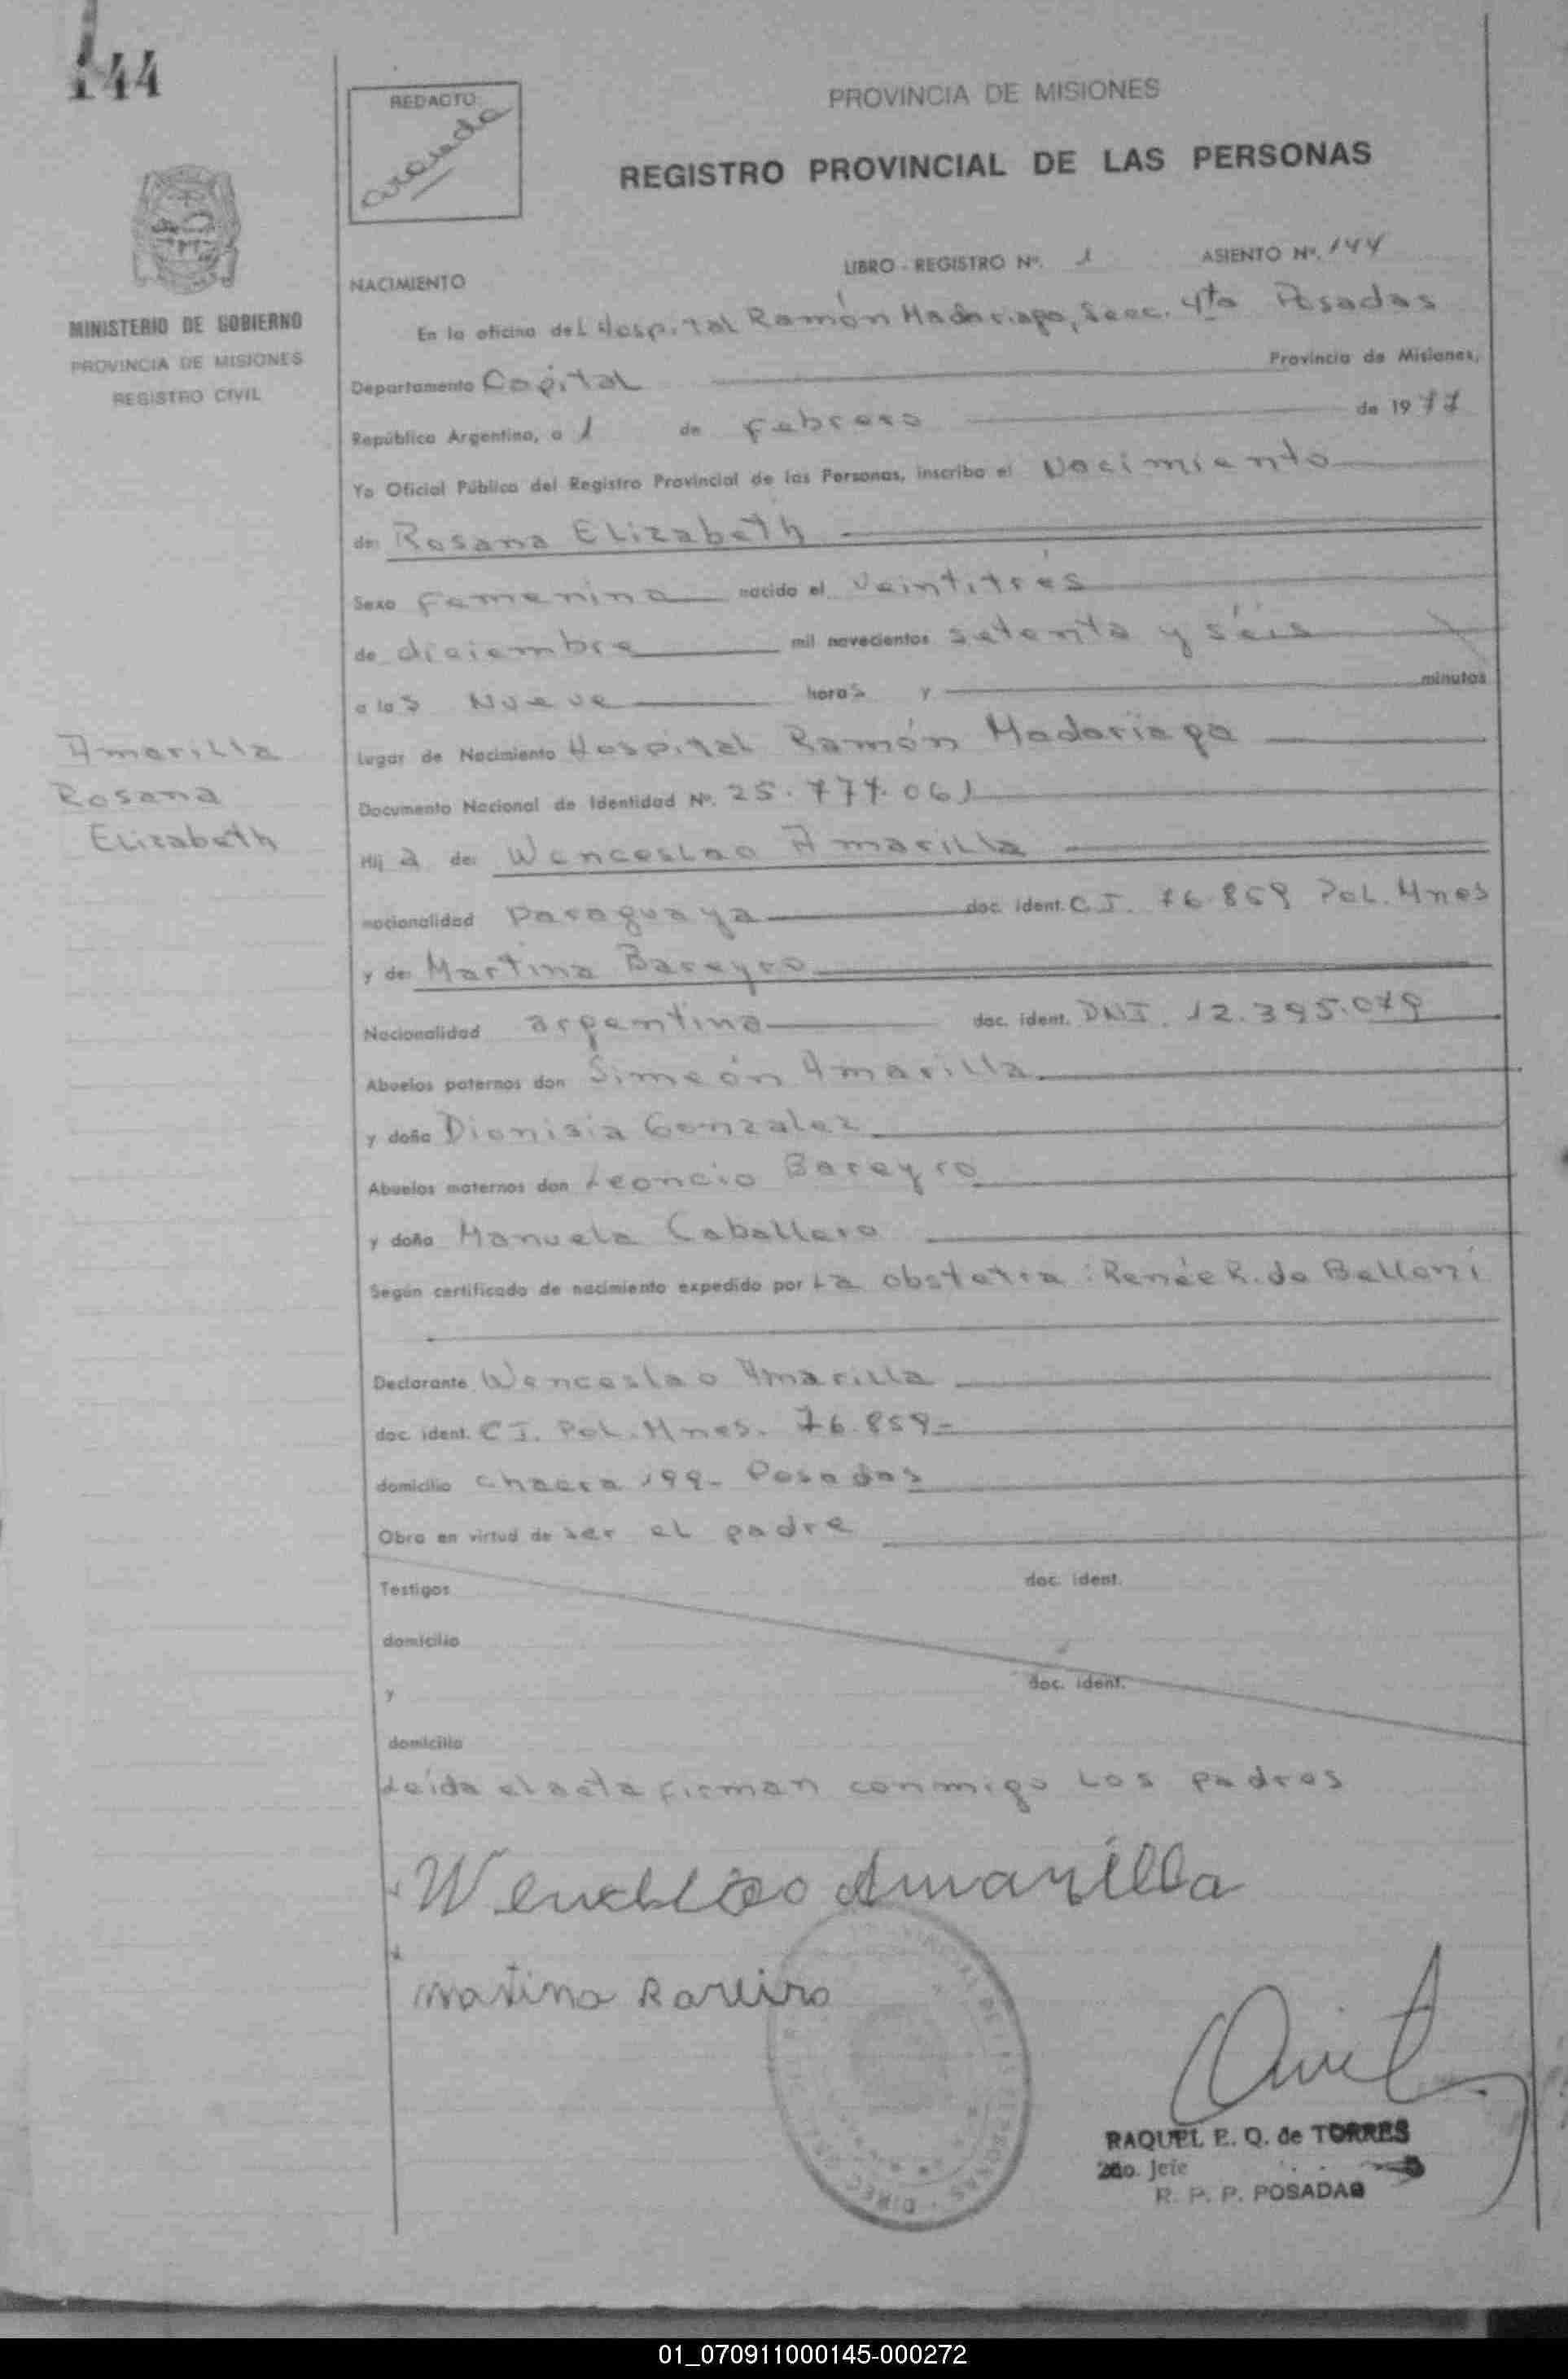 144
REDACTO
PROVINCIA DE MISIONES
REGISTRO PROVINCIAL DE LAS PERSONAS
MINISTERIO DE GOBIERNO
PROVINCIA DE MISIONES
REGISTRO CIVIL
LIBRO - REGISTRO Nº. 1 ASIENTO Nº. 144
NACIMIENTO
En la oficina del Hospital Ramón Madariaga, Secc. 4ta Posadas
Departamento Capital Provincia de Misiones,
República Argentina, a 1 de Febrero de 1977
Yo Oficial Público del Registro Provincial de las Personas, inscribo el Nacimiento
de: Rosana Elizabeth
Sexo Femenino nacida el veintitrés
de diciembre mil novecientos setenta y séis
a las Nueve horas y minutos
Lugar de Nacimiento Hospital Ramón Madariaga
Amarilla
Rosana
Elizabeth
Documento Nacional de Identidad Nº. 25.777.061
Hij a de: Wenceslao Amarilla
nacionalidad paraguaya doc. ident. C I. 76.859 Pol. Mnes
y de: Martina Bareyro
Nacionalidad argentina doc. ident. DNI. 12.395.079
Abuelos paternos don Simeón Amarilla
y doña Dionisia Gonzalez
Abuelos maternos don Leoncio Bareyro
y doña Manuela Caballero
Según certificado de nacimiento expedido por La obstetra: Renée R. de Belloni
Declarante Wenceslao Amarilla
doc. ident. C I. Pol. Mnes. 76.859-
domicilio chacra 199- Posadas
Obra en virtud de ser el padre
Testigos doc. ident.
domicilio
y doc. ident.
domicilio
Leída el acta firman conmigo Los padres
Wenceslao Amarilla
Martina Bareiro
RAQUEL E. Q. de TORRES
2do. Jefe
R. P. P. POSADAS
01_070911000145-000272